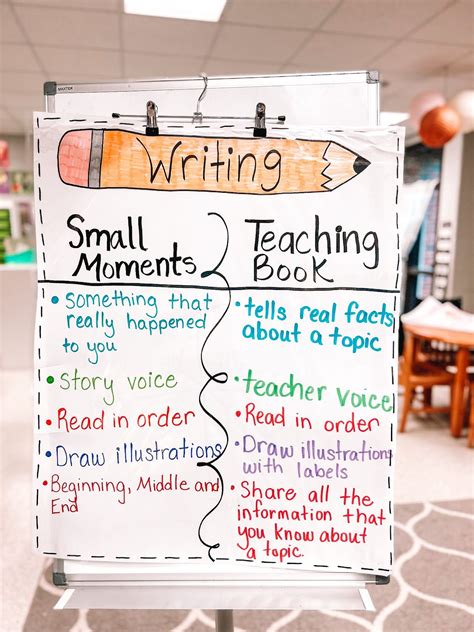 MASTER
Writing
Small
Moments
• Something that
really happened
to you
• Story voice
• Read in order
• Draw illustrations
• Beginning, Middle and
End
Teaching
Book
• tells real facts
about a topic
• teacher voice
• Read in order
• Draw illustrations
with labels
• Share all the
information that
you know about
a topic.